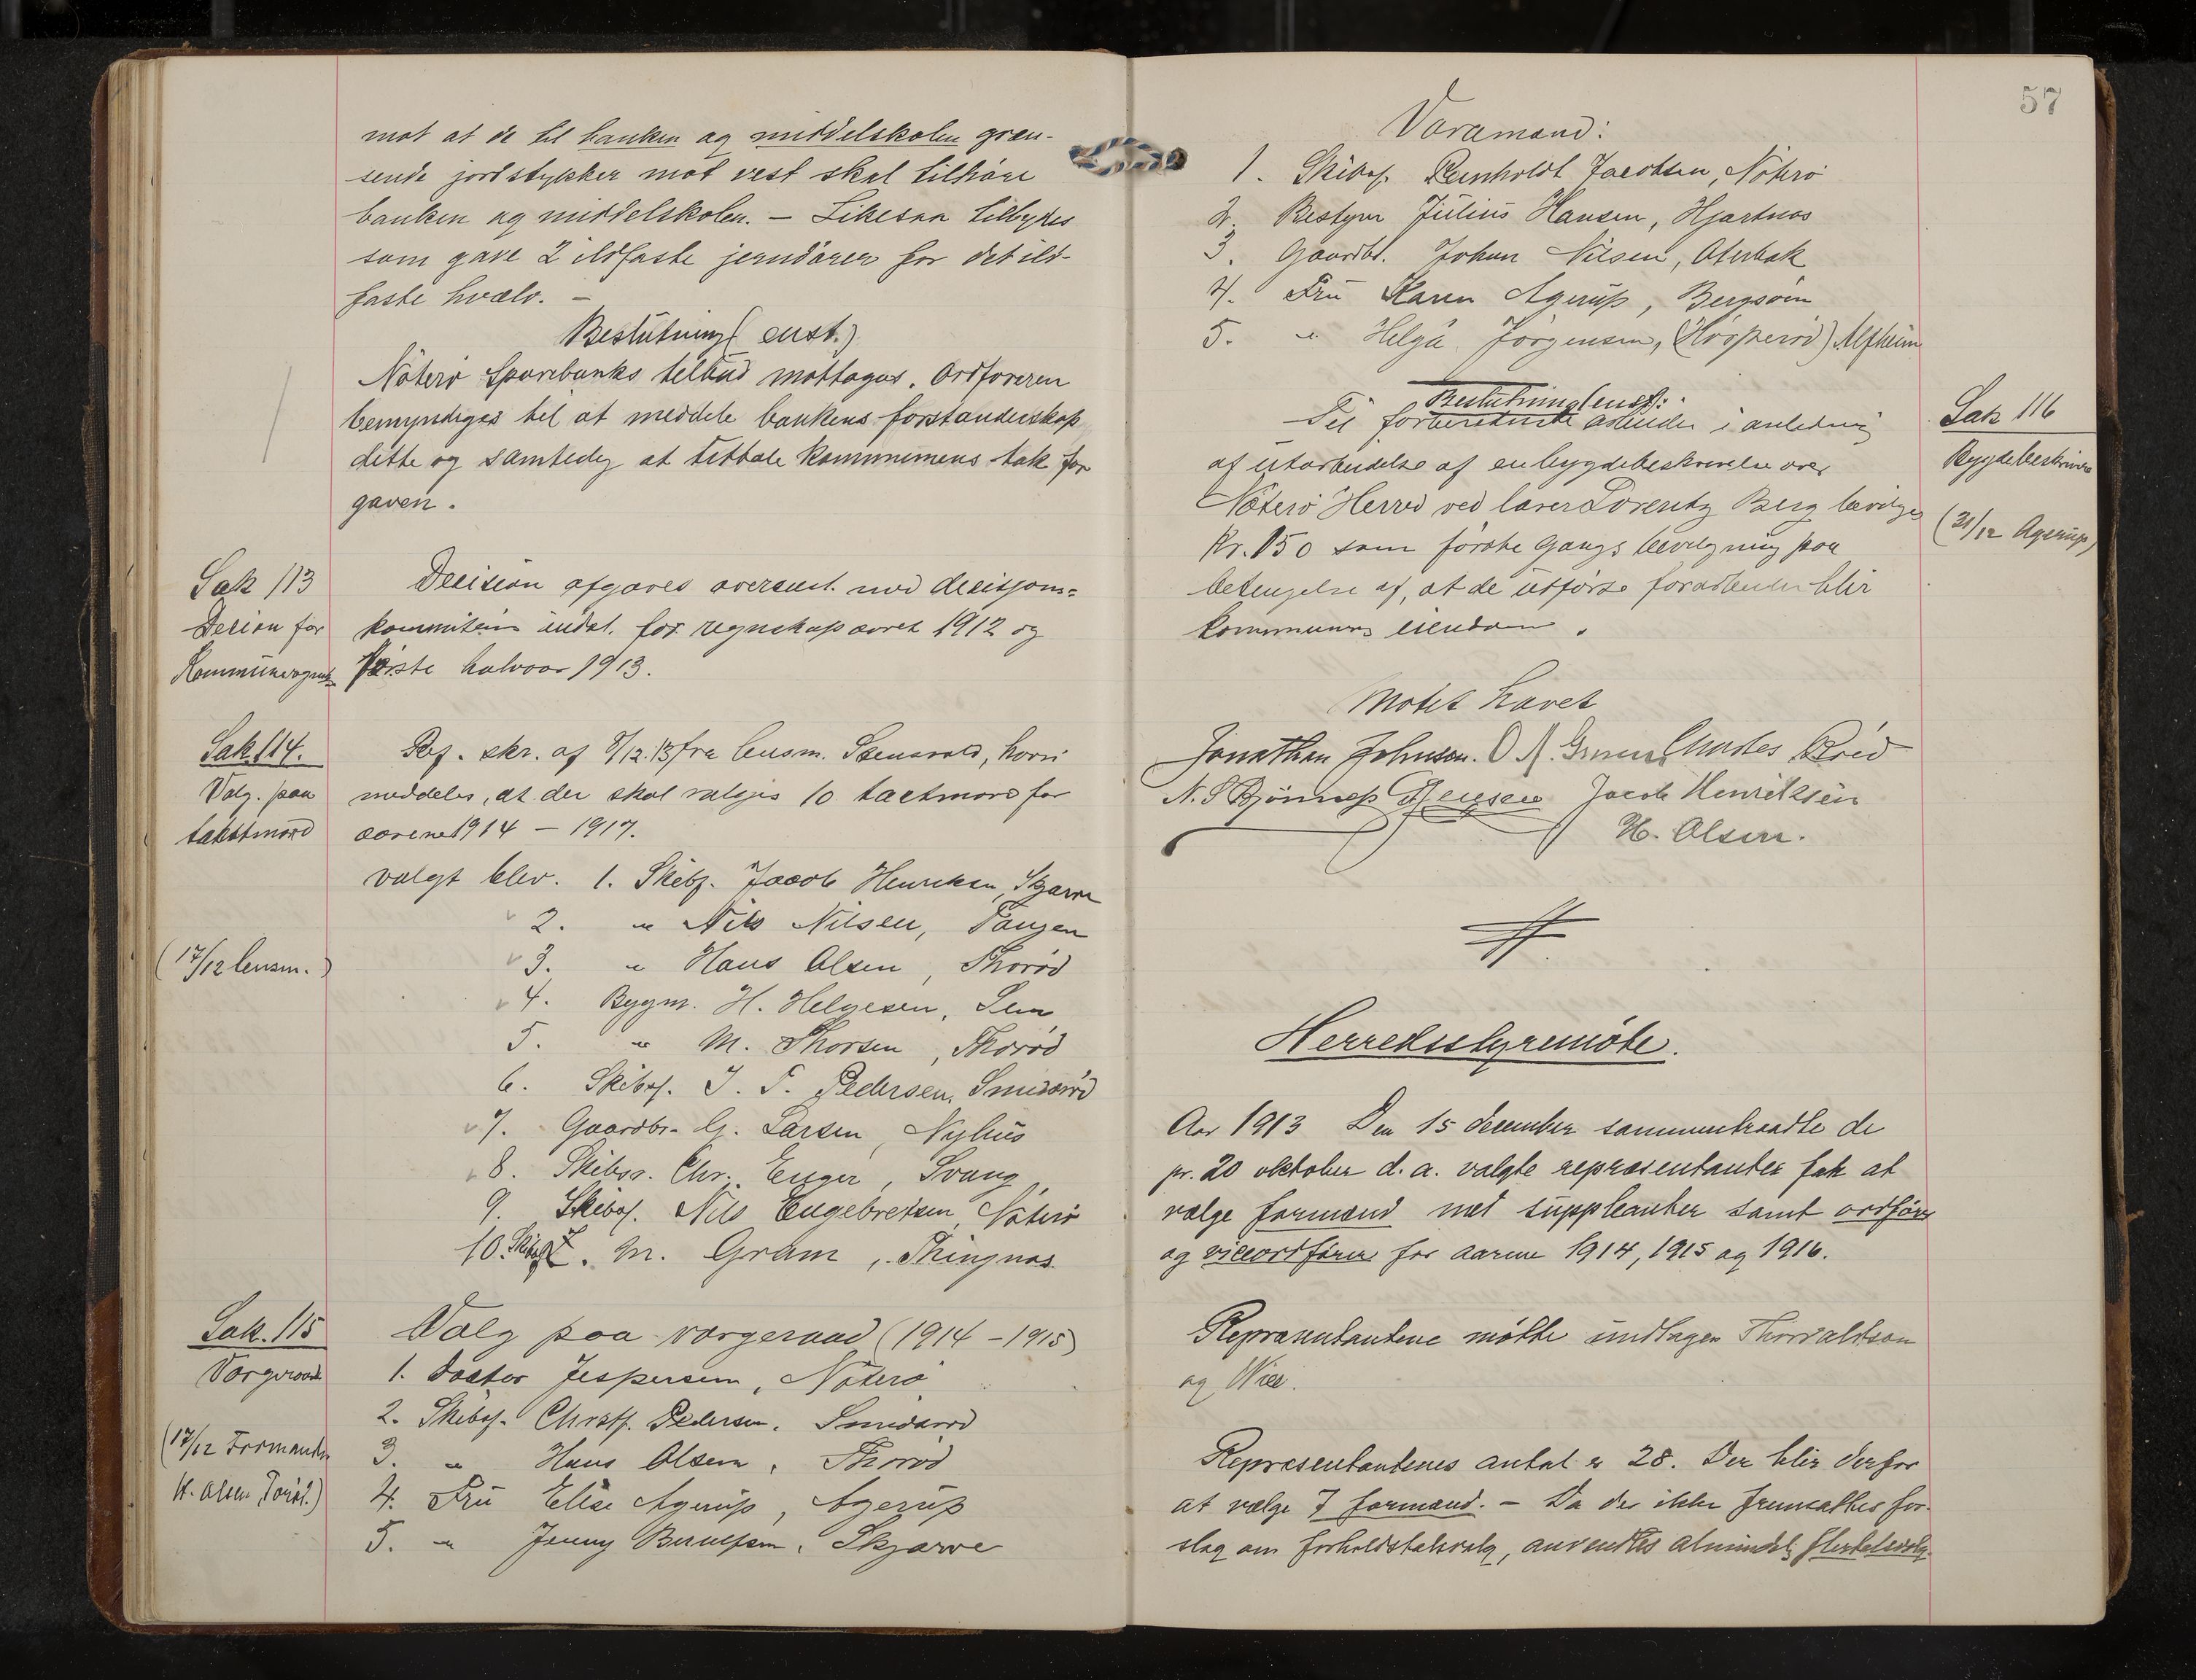 mot at de til banken og middelskolen græn-
sende jordstykker mot vest skal tilhöre
banken og middelskolen. – Likesaa tilbydes
som gave 2 ildfaste jerndörer for det ild-
faste hvælv. –
Beslutning (enst.)
Nöterö Sparebanks tilbud mottages. Ordföreren
bemyndiges til at meddele bankens forstanderskap
dette og samtidig at uttale kommunens tak for
gaven.
Sak 113
Decision for
Kommuneregnsk.
Decision afgaves overenst. med decisjons-
kommiteens indst. for regnskapsaaret 1912 og
förste halvaar 1913.
Sak 114.
Valg paa
takstmænd
(17/12 lensm.)
Ref. skr. af 8/12.13 fra lensm. Stensvold, hvori
meddeles, at der skal vælges 10 taxtmænd for
aarene 1914 – 1917.
valgt blev. 1. Skibsf. Jacob Henriksen, Skjærve
2. " Nils Nilsen, Tangen
3. " Hans Olsen, Thoröd
4. Bygm. H. Helgesen, Sem
5. " M. Thorsen, Thoröd
6. Skibsf. J. F. Pedersen, Smidsröd
7. Gaardbr. G. Larsen, Nyhus
8. Skibsr. Chr. Enger, Svang
9. Skibsf. Nils Engebretsen, Nöterö
10. Skibsf. Z. M. Gram, Thingnæs
Sak. 115
Værgeraad
(17/12 Formanden
H. Olsen, Toröd.)
Valg paa værgeraad (1914 – 1915)
1. Doktor Jespersen, Nöterö
2. Skibsf. Christf. Pedersen, Smidsröd
3. " Hans Olsen, Thoröd
4. Fru Elise Agerup, Agerup
5. " Jenny Berntsen, Skjærve
57
Varamænd:
1. Skibsf. Reinholdt Jacobsen, Nöterö
2. Bestyrer Julius Hansen, Hjertnæs
3. Gaardbr. Johan Nilsen, Oterbæk
4. Fru Karen Agerup, Bergsoen
5. " Helga Jörgensen, (Hösperöd) Alfheim
Beslutning (enst):
Sak 116
Bygdebeskrivelse
(31/12 Agerup)
Til forberedende arbeider i anledning
af utarbeidelse af en bygdebeskrivelse over
Nöterö Herred ved lærer Lorentz Berg bevilges
Kr. 150 som förste Gangs bevilgning paa
betingelse af, at de utförte forarbeider blir
kommunens eiendom.
Mötet hævet
Jonathan Johnson. O. A. Gruner Charles Bröd
N. S. Bjönnes Jensen Jacob Henriksen
H. Olsen.
Herredsstyremöte.
Aar 1913 Den 15 december sammentraadte de
pr. 20 oktober d. a. valgte repræsentanter for at
vælge formænd med suppleanter samt ordförer
og viceordförer for aarene 1914, 1915 og 1916.
Repræsentantene mötte undtagen Thorvaldson
og Wiel.
Repræsentantenes antal er 28. Der blir derfor
at vælge 7 formænd. – Da der ikke fremsattes for-
slag om forholdstalsvalg, anvendtes almindel. flertalsvalg.